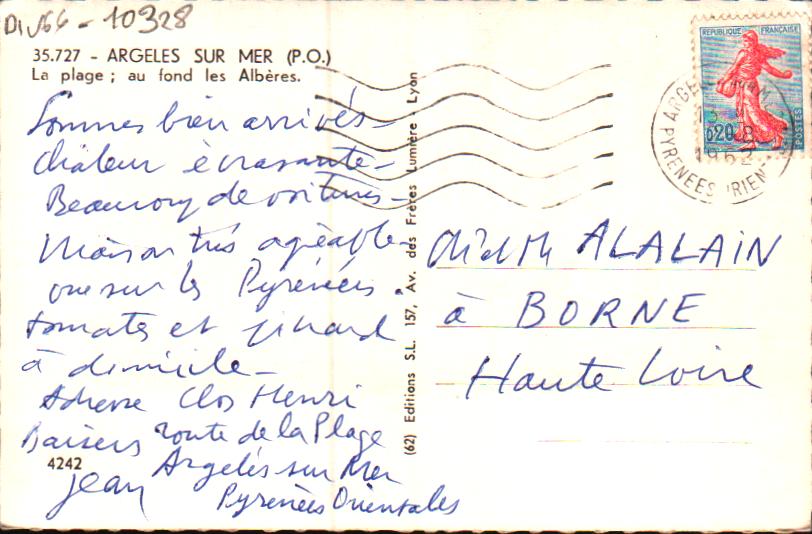 Div66 - 10328
35.727 - ARGELES SUR MER (P.O.)
La plage ; au fond les Albères.
Sommes bien arrivés -
Chaleur écrasante -
Beaucoup de voitures -
Maison très agréable -
vue sur les Pyrénées.
tomates et pinard
à domicile -
Adresse Clos Henri
Baisers route de la Plage
4242
Argelès sur Mer
Jean Pyrénées Orientales
(62) Editions S.L. 157, Av. des Frères Lumière - Lyon
REPUBLIQUE FRANÇAISE
0,20
POSTES
13
8
1962
PYRENEES ORIENT
ALALAIN
à BORNE
Haute Loire